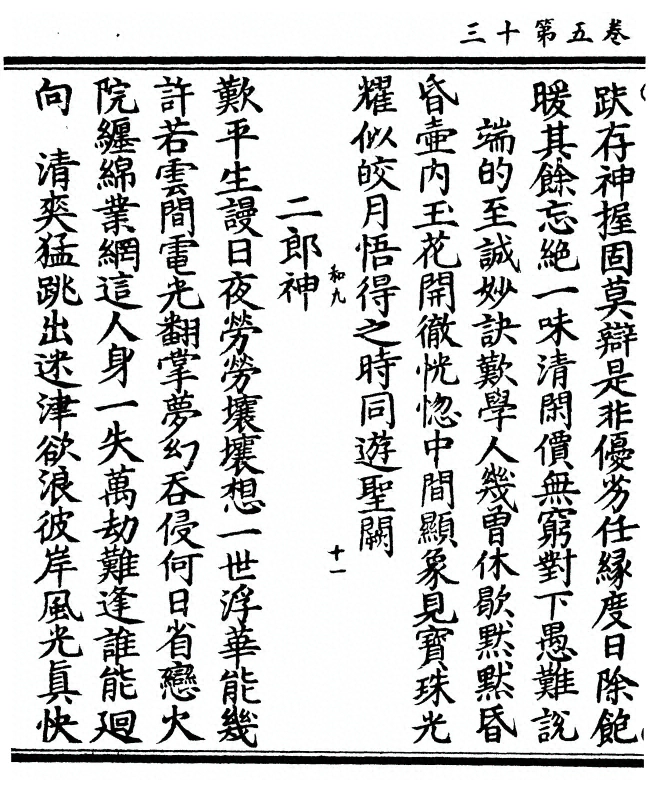 卷五第十三
趺存神握固莫辯是非優劣任緣度日除飽
暖其餘忘絶一味清閑價無窮對下愚難說
端的至誠妙訣歎學人幾曾休歇默默昏
昏壷内玉花開徹恍惚中間顯象見寳珠光
耀似皎月悟得之時同遊聖闕
二郎神
和九
十一
歎平生謾日夜勞勞壤壤想一世浮華能幾
許若雲間電光翻掌夢幻吞侵何日省戀火
院纏綿業網這人身一失萬劫難逢誰能廻
向 清爽猛跳出迷津欲浪彼岸風光眞快